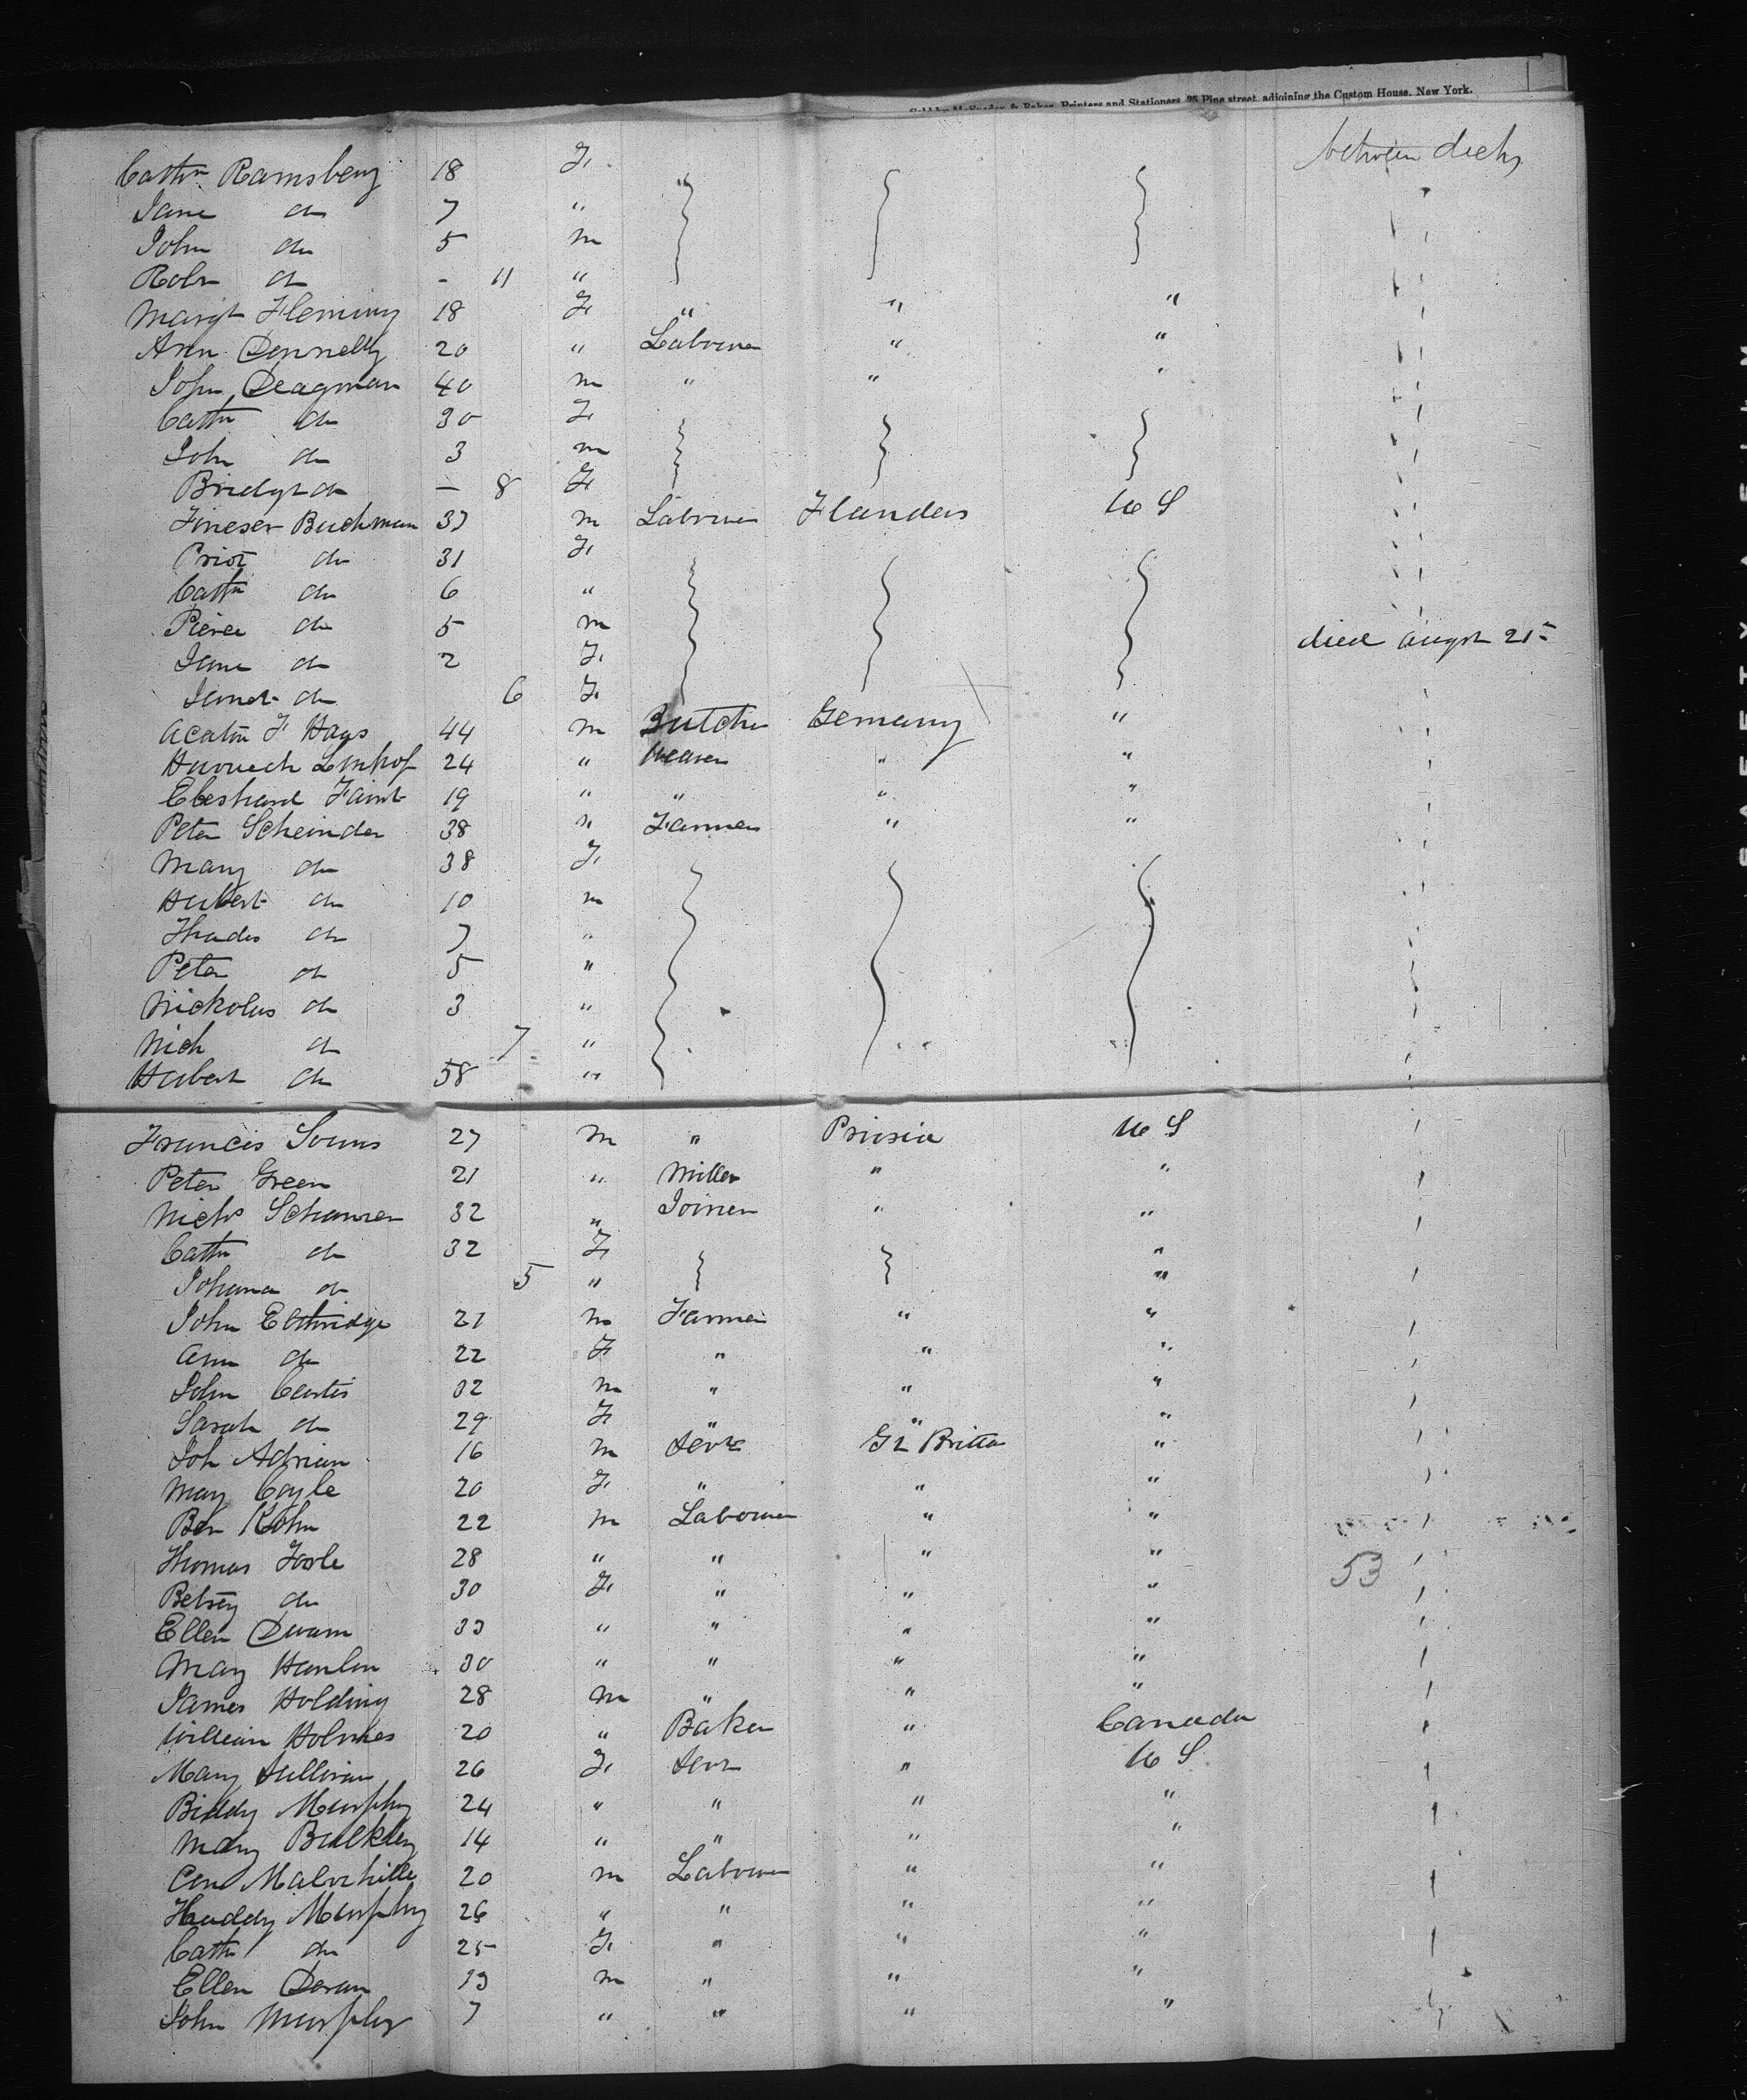 Printers and Stationers, 25 Pine street, adjoining the Custom House, New York.
Cathn Ramsberg 18 F. between decks
Jane do 7 "
John do 5 m
Robr do - 11 "
Margt Fleming 18 F " " "
Ann Donnelly 20 " Labourer " "
John Deagman 40 m " " "
Cathn do 30 F
John do 3 m
Bridgt do – 8 F
Buchman 37 m Labourer Flanders U S
do 31 F
Cathn do 6 "
Pierce do 5 m died Augst 21st
Jane do 2 F
Janet do 6 F
F Hays 44 m Butcher Gemany "
24 " Weaver " "
19 " " " "
Peter Scheinder 38 " Farmer " "
Mary do 38 F
Hubert do 10 m
Thades do 7 "
Peter do 5 "
Nickolus do 3 "
Nich do 7 "
Hubert do 58 "
Francis 27 m " Prusia U S
Peter Green 21 " Miller " "
Nichs 32 " Joiner " "
Cathn do 32 F "
Johana do 5 " "
John Elthridge 21 m Farmer " "
Ann do 22 F " " "
John Curtis 32 m " " "
Sarah do 29 F " " "
Joh Adrian 16 m Servt Gt Britta "
Mary Coyle 20 F " " "
Ben Kohn 22 m Labourer " "
Thomas Toole 28 " " " " 53
Betsey do 30 F " " "
Ellen 33 " " " "
Mary Hanlon 30 " " " "
James Holding 28 m " " "
William Holmes 20 " Baker " Canada
Mary Sullivan 26 F Servt " U S
Biddy Murphy 24 " " " "
Mary Bulkley 14 " " " "
Con Malvihille 20 m Labourer " "
Murphy 26 " " " "
Cathn do 25 F " " "
Ellen Doran 13 m " " "
John Murphy 7 " " " "